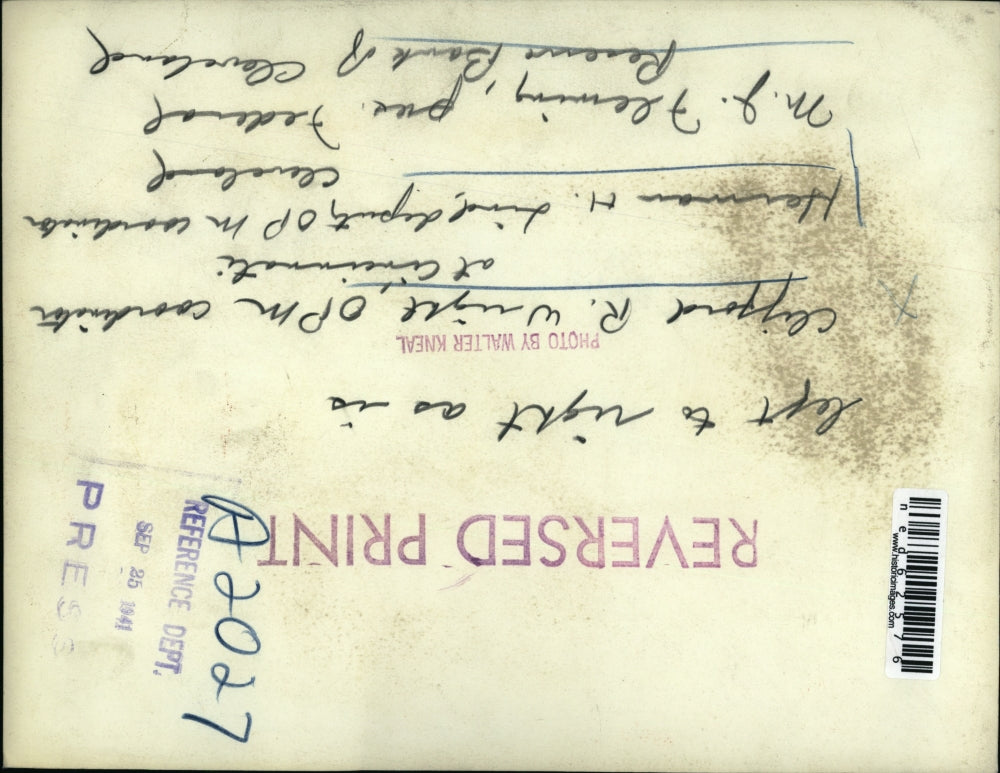 REVERSED PRINT
left to right as is
PHOTO BY WALTER KNEAL
Clifford R. Wright, OPM coordinator
at Cincinnati
Herman H. Lind, deputy OPM coordinator
Cleveland
M. J. Fleming, pres. Federal
Reserve Bank of Cleveland
A2027
REFERENCE DEPT.
SEP 25 1941
PRESS
ned62576
www.historicimages.com